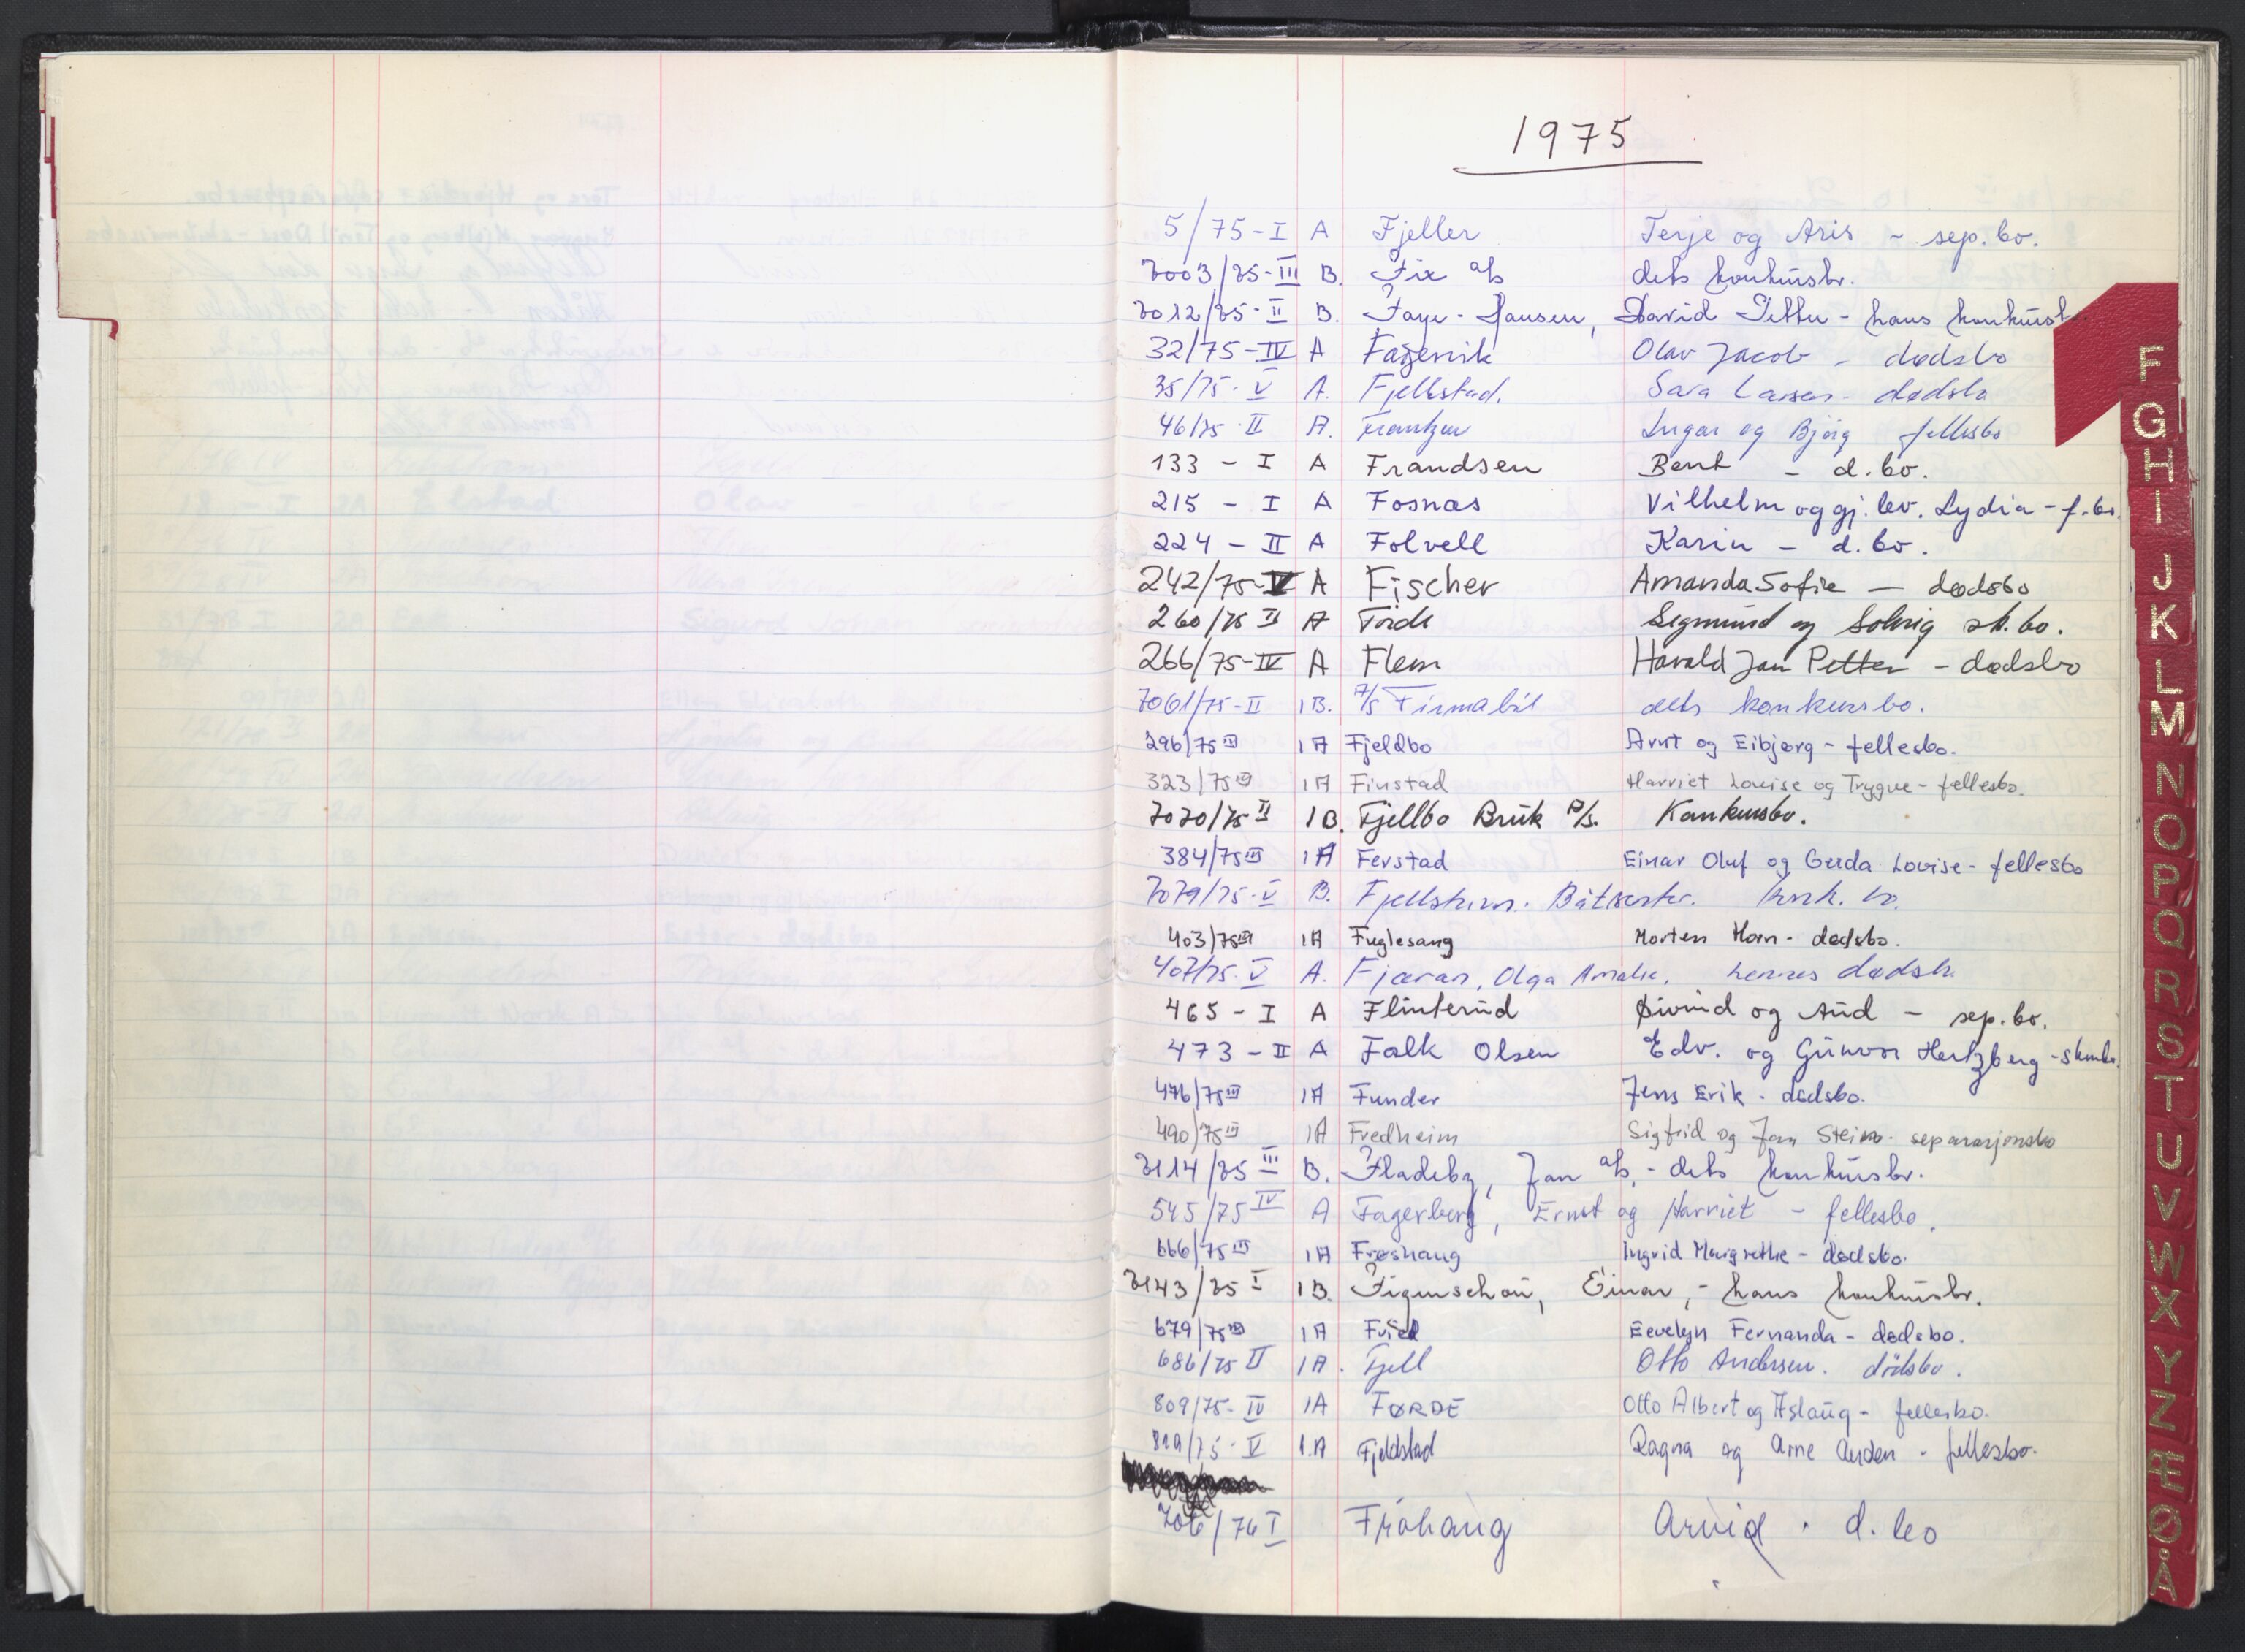 1975
5/75-I A Fjeller Terje og Aris - sep.bo.
7003/75-III B. Fix a/s dets konkursbo.
7012/75-II B. Faye-Hansen, David Petter - hans konkursb
32/75-IV A Fagervik Olav Jacob - dødsbo
35/75-V A. Fjellstad. Sara Larsen - dødsbo
46/75-II A. Frantzen Ingar og Bjørg fellesbo
133 - I A Frandsen Bent - d.bo.
215 - I A Fosnæs Vilhelm og gj.lev. Lydia - f.bo.
224 - II A Folvell Karin - d.bo.
242/75-V A Fischer Amanda Sofie - dødsbo
260/75 II A Förde Sigmund og Solveig sk.bo.
266/75-IV A Flem Harald Jan Petter - dødsbo
7061/75-II 1B. A/S Firmabil dets konkursbo.
296/75 III 1A Fjeldbo Arnt og Eibjørg - fellesbo.
323/75 III 1A Finstad Harriet Louise og Trygve - fellesbo.
7070/75 II 1B. Fjellbo Bruk A/S. Konkursbo.
384/75 III 1A Ferstad Einar Oluf og Gerda Lovise - fellesbo
7079/75-V B. Båtsenter. konk.bo.
403/75 III 1A Fuglesang Morten Horn - dødsbo.
407/75-V A. Fjæran, Olga Amalie, hennes dødsbo
465 - I A Flinterud Øivind og Aud - sep.bo.
473 - II A Falk Olsen Edv. og Gunvor Hertzberg - skmbo.
476/75 III 1A Funder Jens Erik - dødsbo.
490/75 III 1A Fredheim Sigfrid og Jan Stein - separasjonsbo
7114/75 III B. Fladeby, Jan a/s, - dets konkursbo.
545/75 IV A Fagerberg, Ernst og Harriet - fellesbo.
666/75 III 1A Frøshaug Ingrid Margrethe - dødsbo.
7143/75 I 1B. Figenschou, Einar, - hans konkursbo.
679/75 III 1A Fried Eevelyn Fernanda - dødsbo.
686/75 II 1A. Fjell Otto Andersen. dödsbo.
809/75-IV 1A FØRDE Otto Albert og Aslaug - fellesbo.
819/75-V 1.A Fjeldstad Ragna og Arne Auden - fellesbo.
706/76 I Fröhaug Arvid . d.bo
F
G
H
I
J
K
L
M
N
O
P
Q
R
S
T
U
V
W
X
Y
Z
Æ
Ø
Å